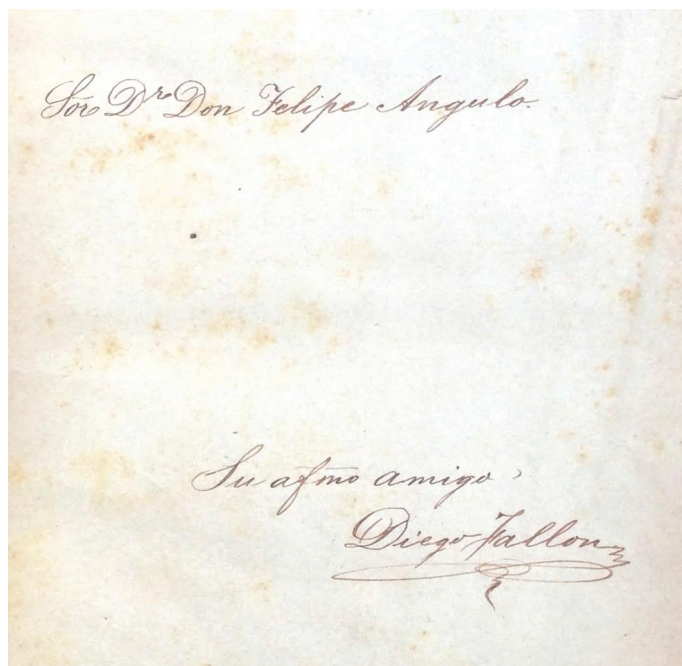 Sor Dr Don Felipe Angulo.
Su afmo amigo
Diego Fallon